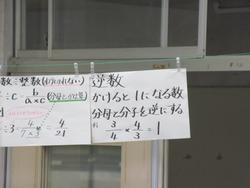 数÷整数(わりきれない)
÷c= b/a×c (分母とかけ算)
÷3= 4/7×3 = 4/21
逆数
かけると1になる数
分母と分子を逆にする
例 3/4 × 4/3 = 1